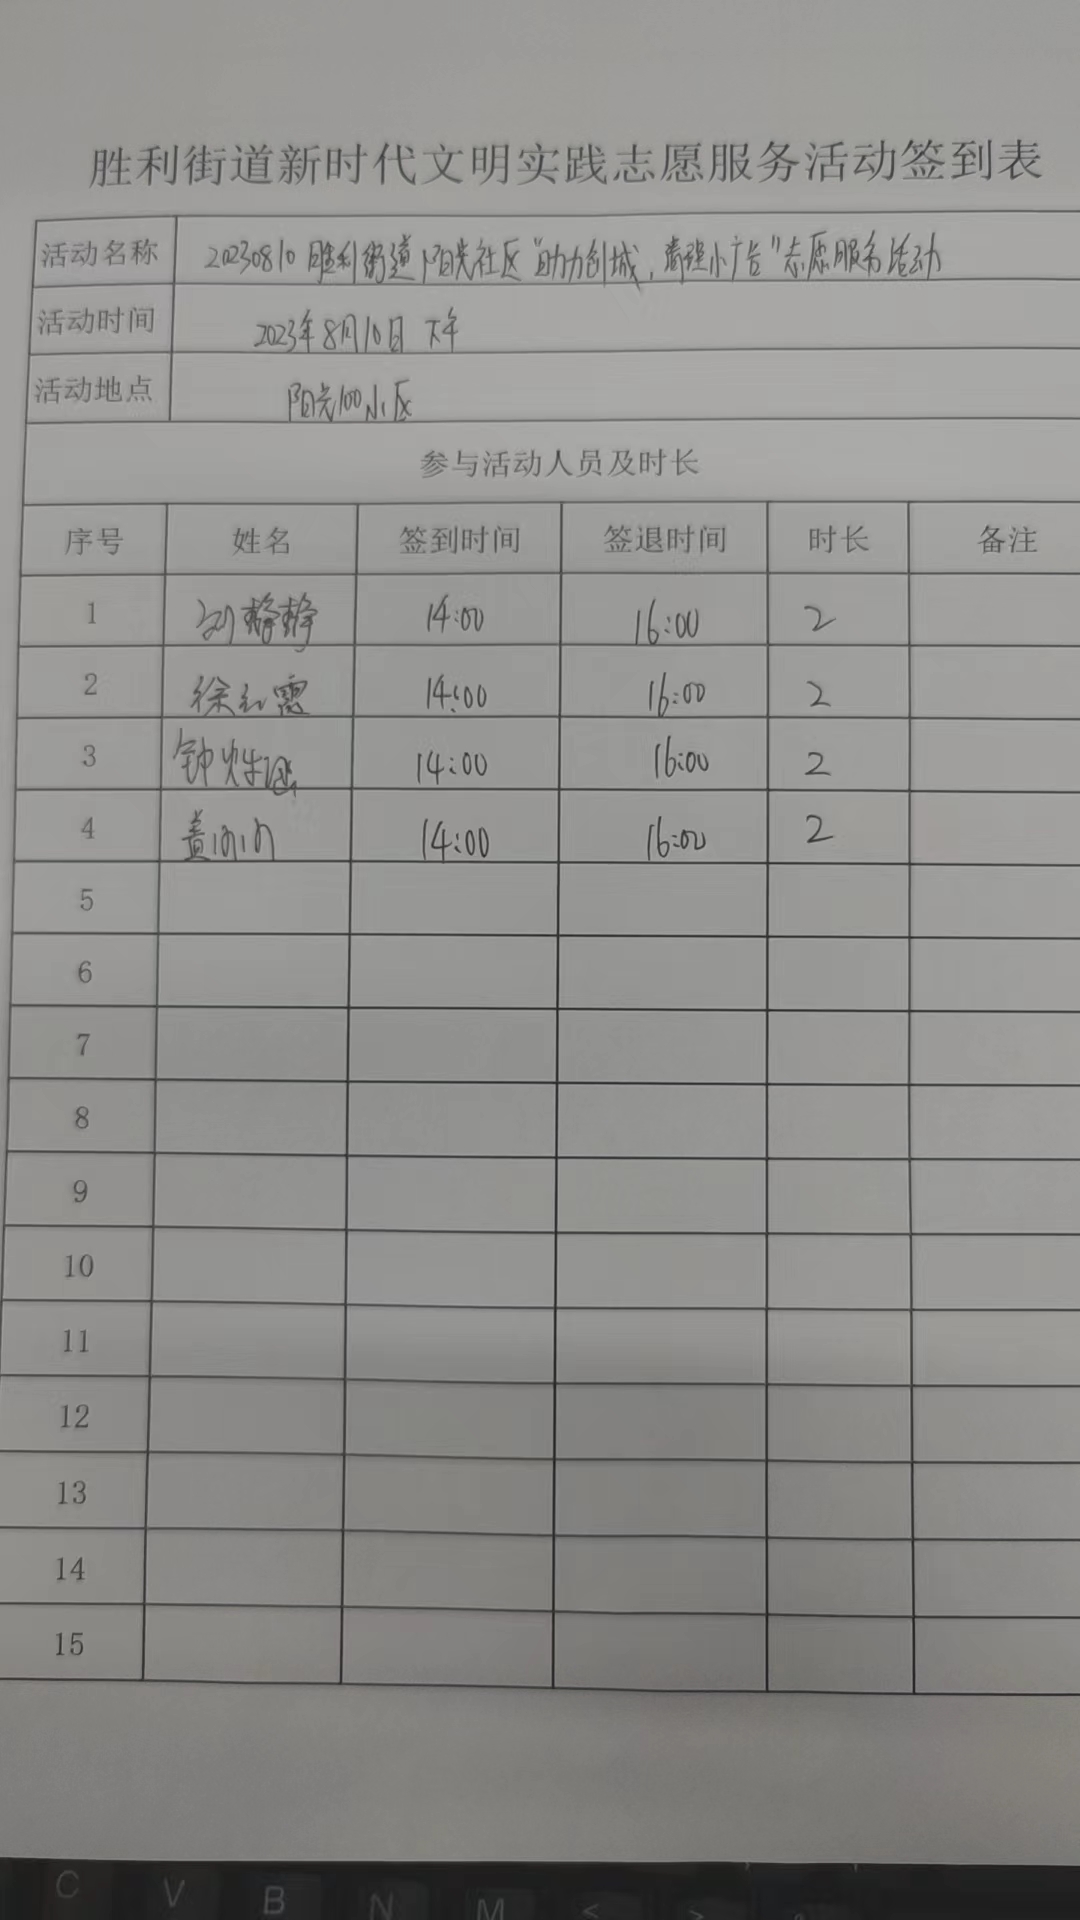 胜利街道新时代文明实践志愿服务活动签到表
活动名称 20230810 胜利街道阳光社区"助力创城,清理小广告"志愿服务活动
活动时间 2023年8月10日 下午
活动地点 阳光100小区
参与活动人员及时长
序号 姓名 签到时间 签退时间 时长 备注
1 刘静静 14:00 16:00 2
2 徐 14:00 16:00 2
3 钟 14:00 16:00 2
4 盖 14:00 16:00 2
5
6
7
8
9
10
11
12
13
14
15
C V B N M < >